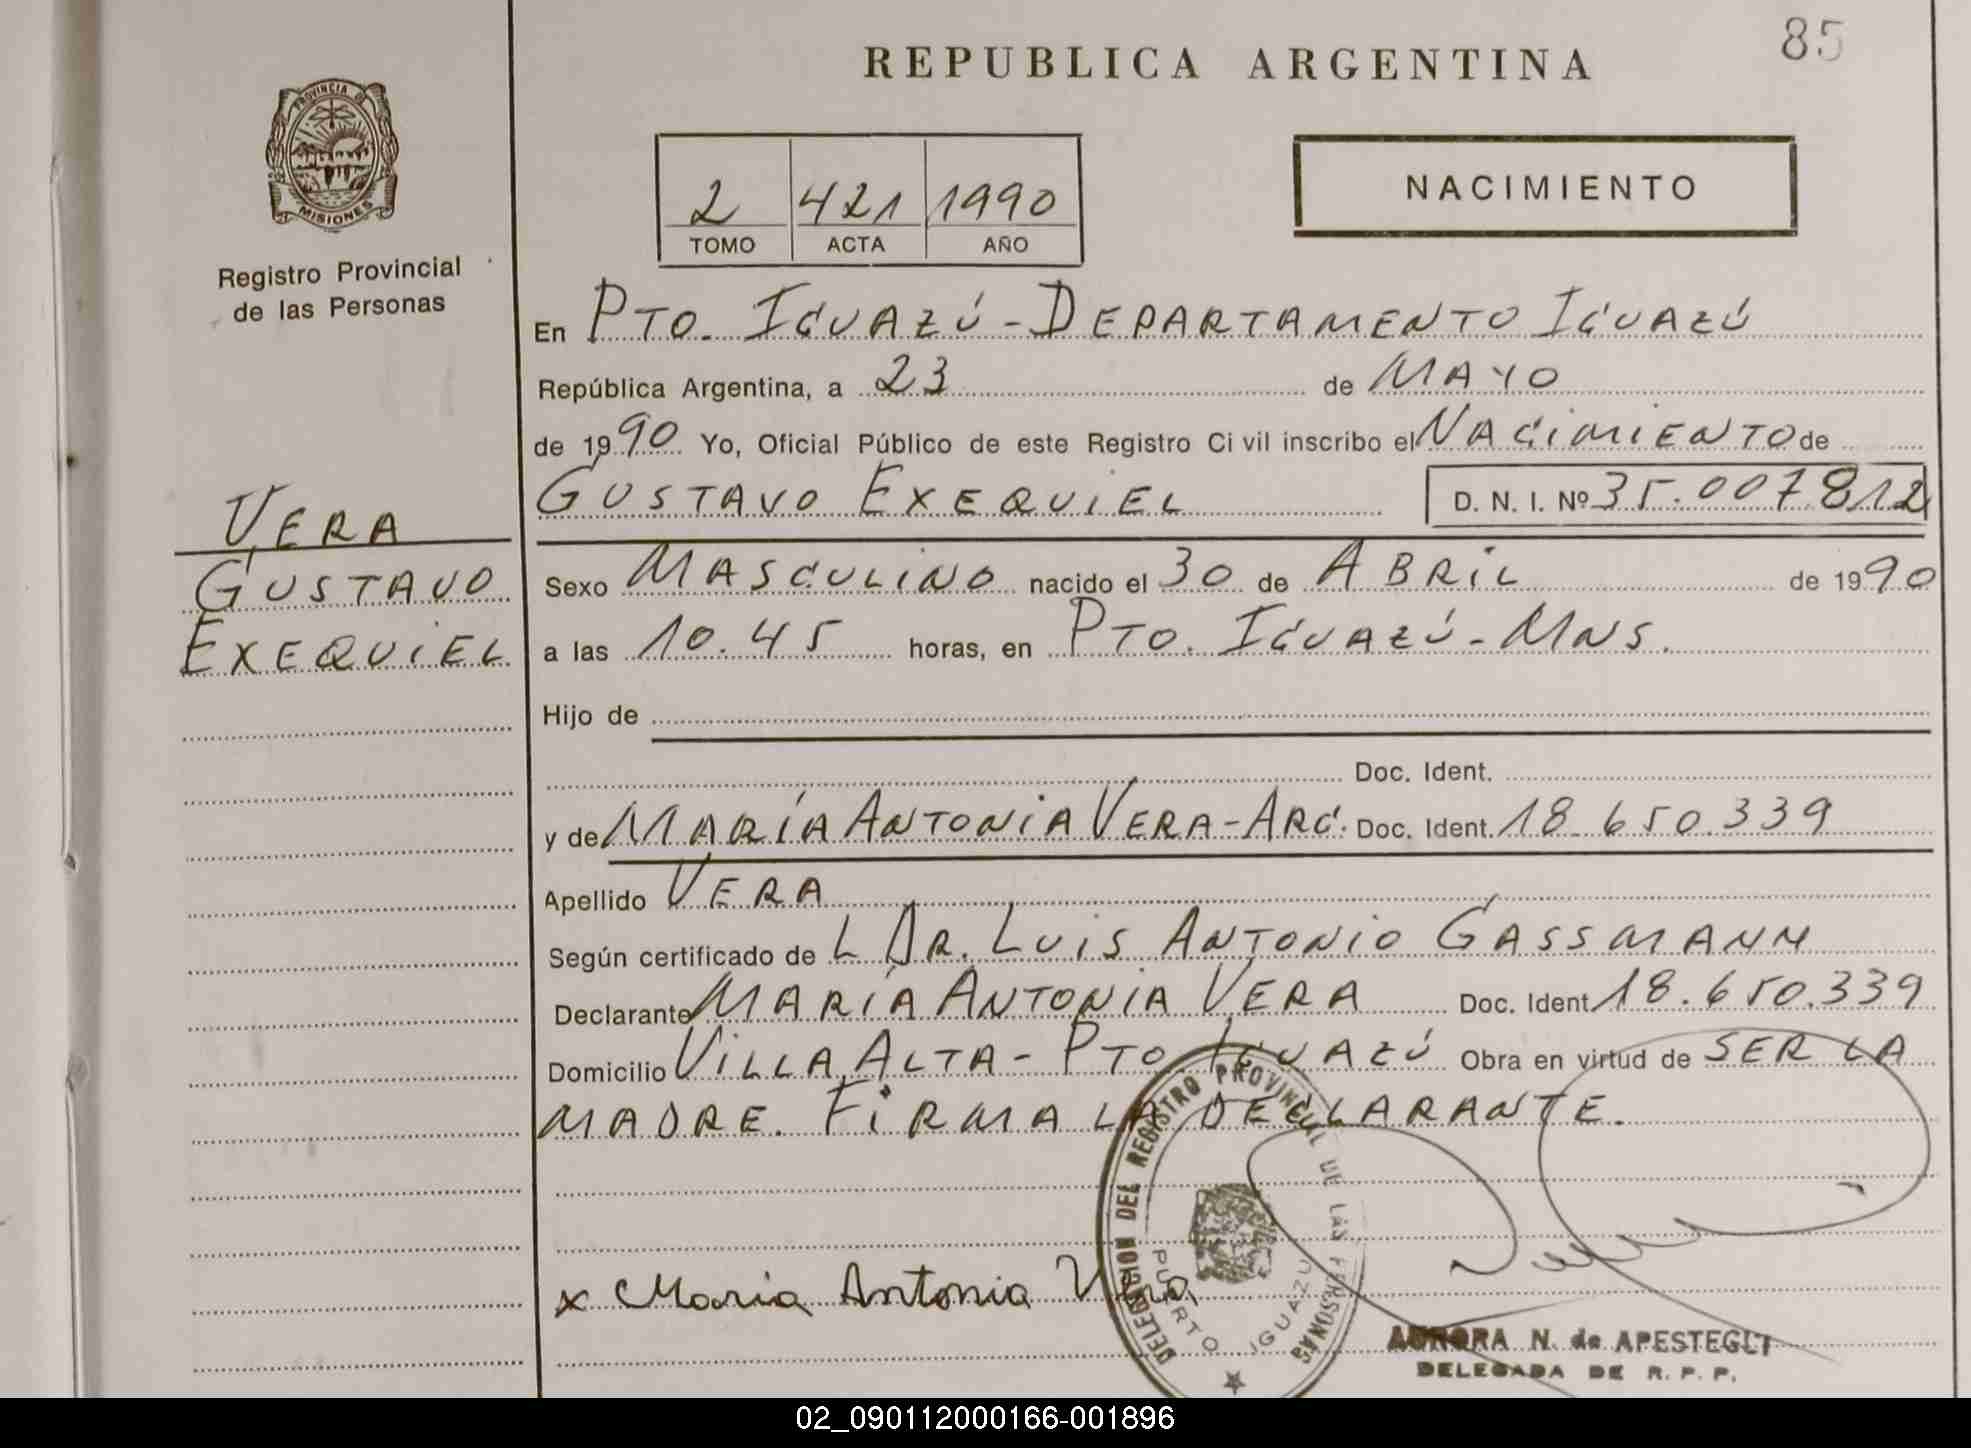 85
REPUBLICA ARGENTINA
PROVINCIA DE
MISIONES
Registro Provincial
de las Personas
2 421 1990
TOMO ACTA AÑO
NACIMIENTO
En PTO. IGUAZÚ - DEPARTAMENTO IGUAZÚ
República Argentina, a 23 de MAYO
de 1990 Yo, Oficial Público de este Registro Civil inscribo el NACIMIENTO de
GUSTAVO EXEQUIEL D. N. I. Nº 35.007812
VERA
GUSTAVO
EXEQUIEL
Sexo MASCULINO nacido el 30 de ABRIL de 1990
a las 10.45 horas, en PTO. IGUAZÚ - MNS.
Hijo de
Doc. Ident.
y de MARÍA ANTONIA VERA - ARG. Doc. Ident. 18.650.339
Apellido VERA
Según certificado de L DR. LUIS ANTONIO GASSMANN
Declarante MARÍA ANTONIA VERA Doc. Ident 18.650.339
Domicilio VILLA ALTA - PTO IGUAZÚ Obra en virtud de SER LA
MADRE. FIRMA LA DECLARANTE.
DELEGACION DEL REGISTRO PROVINCIAL DE LAS PERSONAS
PUERTO IGUAZU
x Maria Antonia Vera
AURORA N. de APESTEGUI
DELEGADA DE R. P. P.
02_090112000166-001896